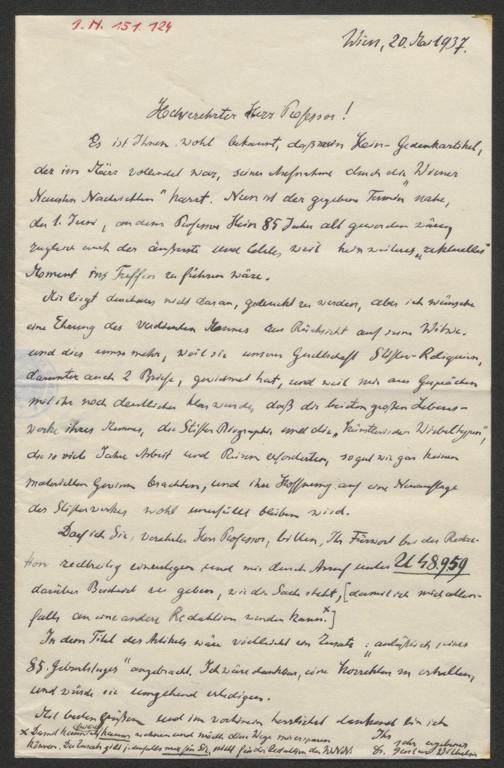 I.N. 151.124
Wien, 20. Mai 1937.
Hochverehrter Herr Professor!
Es ist Ihnen wohl bekannt, daß mein Hein-Gedenkartikel,
der im März vollendet war, seiner Aufnahme durch die "Wiener
Neuesten Nachrichten" harrt. Nun ist der gegebene Termin nahe,
der 1. Juni, an dem Professor Hein 85 Jahre alt geworden wäre,
zugleich auch der äußerste und letzte, weil kein weiteres "aktuelles"
Moment ins Treffen zu führen wäre.
Mir liegt durchaus nicht daran, gedruckt zu werden, aber ich wünsche
eine Ehrung des verdienten Mannes aus Rücksicht auf seine Witwe.
und dies umso mehr, weil sie unserer Gesellschaft Stifter-Reliquien,
darunter auch 2 Briefe, gewidmet hat, und weil mir aus Gesprächen
mit ihr noch deutlicher klar wurde, daß die beiden großen Lebens-
werke ihres Mannes, die Stifter Biographie und die "Künstlerischen Wirbeltypen",
die so viele Jahre Arbeit und Reisen erforderten, so gut wie gar keinen
materiellen Gewinn brachten, und ihre Hoffnung auf eine Neuauflage
des Stifterwerkes wohl unerfüllt bleiben wird.
Darf ich Sie, verehrter Herr Professor, bitten, Ihr Fürwort bei der Redak-
tion rechtzeitig einzulegen und mir durch Anruf unter U 48.9.59
darüber Bescheid zu geben, wie die Sache steht, [damit ich mich allen-
falls an eine andere Redaktion wenden kann.x]
In dem Titel des Artikels wäre vielleicht ein Zusatz: "anläßlich seines
85. Geburtstages" angebracht. Ich wäre dankbar, eine Korrektur zu erhalten,
und würde sie umgehend erledigen.
Mit besten Grüßen und im vorhinein herzlichst dankend bin ich
Ihr
sehr ergebener
Dr. Gustav Wilhelm
x Damit kann ich rechnen und möchte diese Wege mir ersparen
können. Der Zusatz gilt jedenfalls nur für Sie, nicht für die Redaktion der W.N.N.